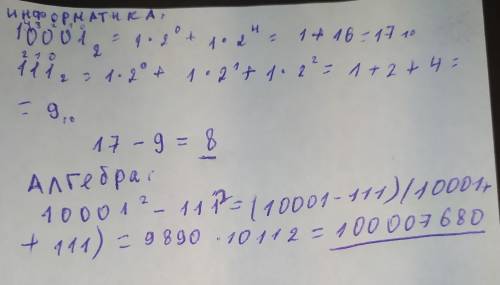 ИНФОРМАТИКА:
4 3 2 1 0
10001₂ = 1·2⁰ + 1·2⁴ = 1+16=17₁₀
2 1 0
111₂ = 1·2⁰ + 1·2¹ + 1·2² = 1+2+4=
= 9₁₀
17 - 9 = 8
Алгебра:
10001² - 111² = (10001-111)(10001+
+ 111) = 9890 · 10112 = 100007680